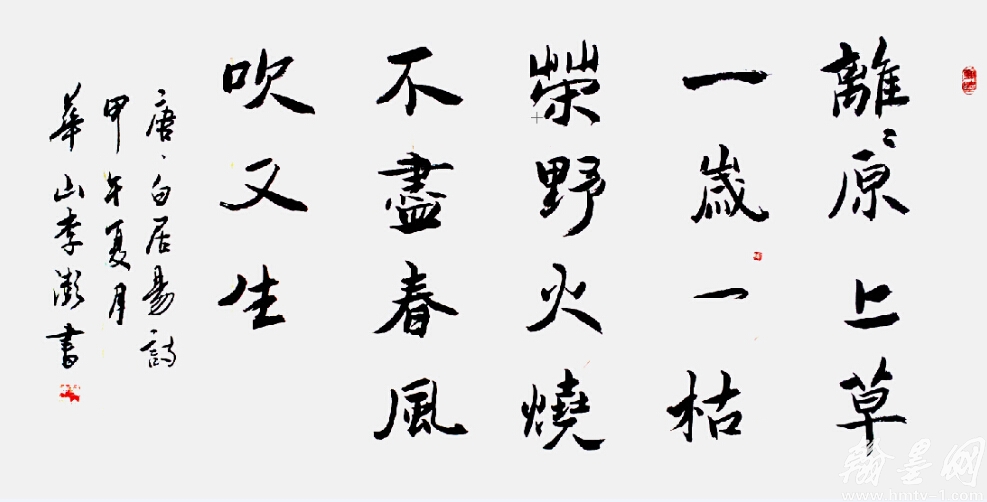 離〻原上草
一歲一枯
榮野火燒
不盡春風
吹又生
唐、白居易詩
甲午夏月
華山李澎書
翰墨网
www.hmtv-1.com